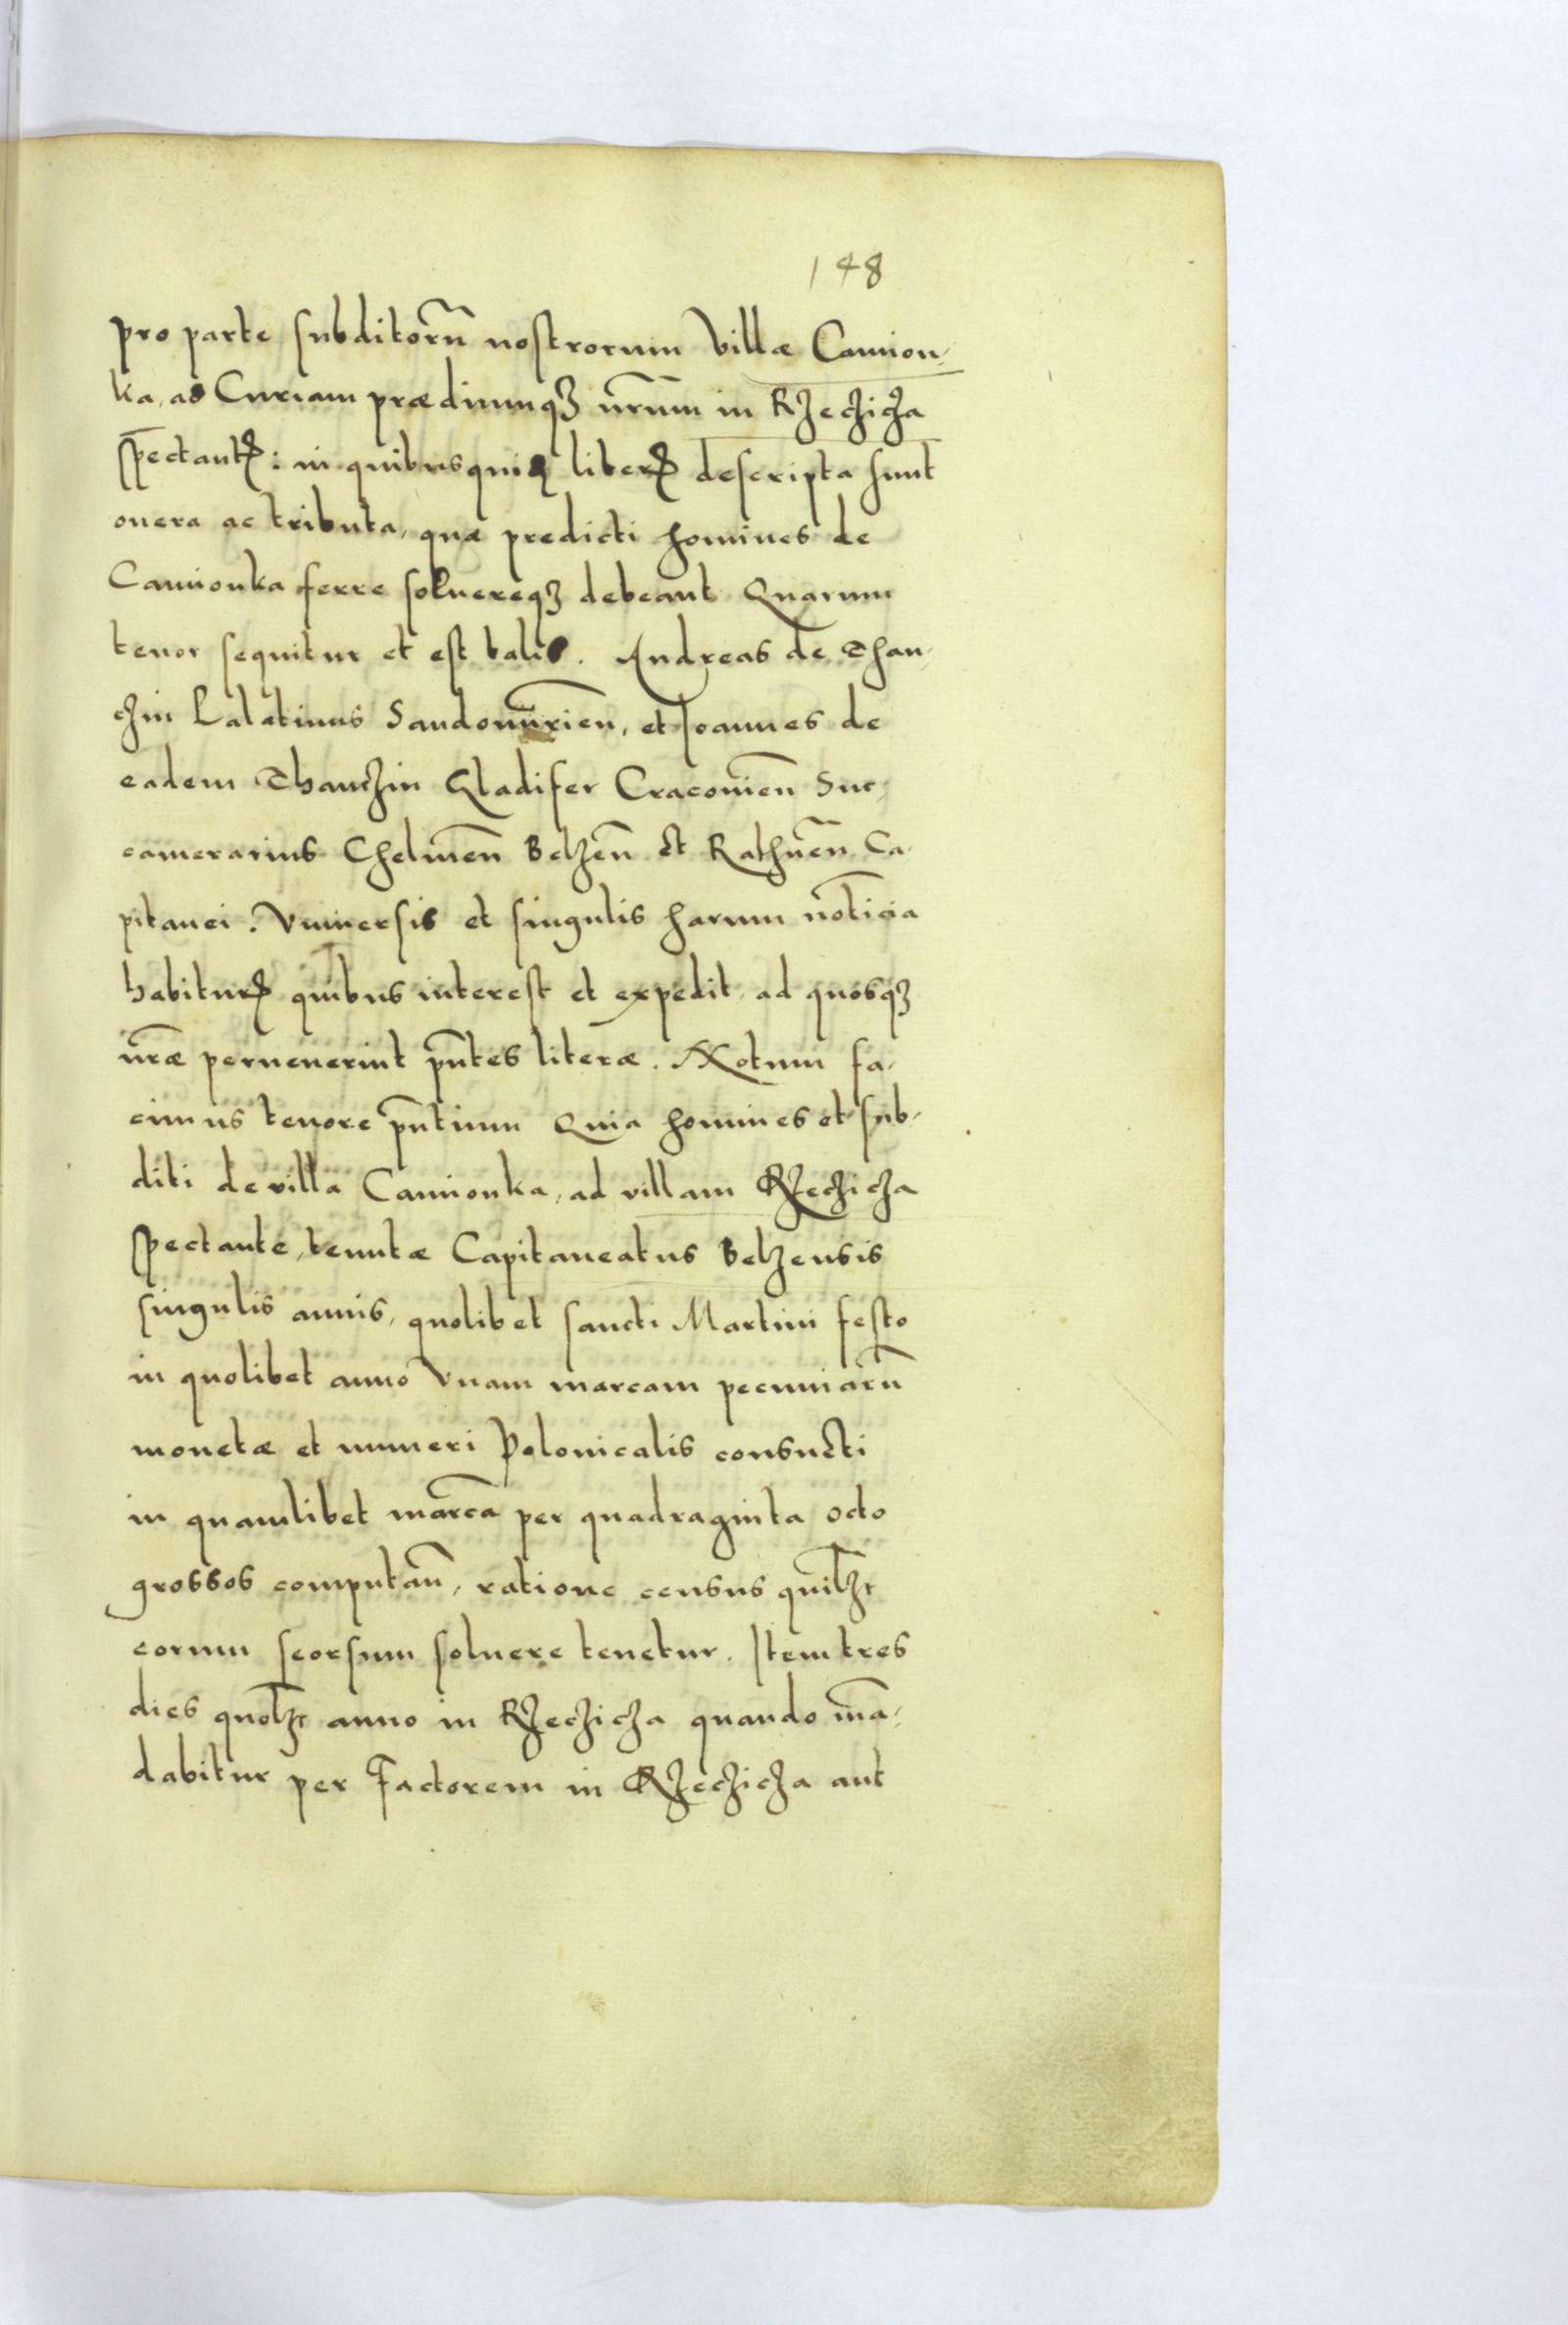 148
pro parte subditorũ nostrorum Villæ Camion-
ka, ad Curiam prædiumqȝ nr̃um in Rzeczicza
spectantꝭ: in quibusquiꝫ literꝭ descripta sunt
onera ac tributa, quæ predicti homines de
Camionka ferre soluereqȝ debeant Quarum
tenor sequitur et est talis. Andreas de Than-
czin Palatinus Sandomirień, et Joannes de
eadem Thanczin Gladifer Cracovień Suc-
camerarius Chelmeñ Belzeñ et Rathneñ Ca-
pitanei. Vniuersis et singulis harum noticiã
habiturꝭ quibus interest et expedit, ad quosqȝ
nr̃æ peruenerint pñtes literæ. Notum fa-
cimus tenore pñtium Quia homines et sub-
diti de villa Camionka, ad villam Rzeczicza
spectante, tenutæ Capitaneatus Belzensis
singulis annis, quolibet sancti Martini festo
in quolibet anno Vnam marcam pecuniarũ
monetæ et numeri Polonicalis consueti
in quamlibet marcã per quadraginta octo
grossos computañ, ratione census quilȝt
eorum seorsum soluere tenetur. Item tres
dies quolȝt anno in Rzeczicza quando mã-
dabitur per Factorem in Rzeczicza aut